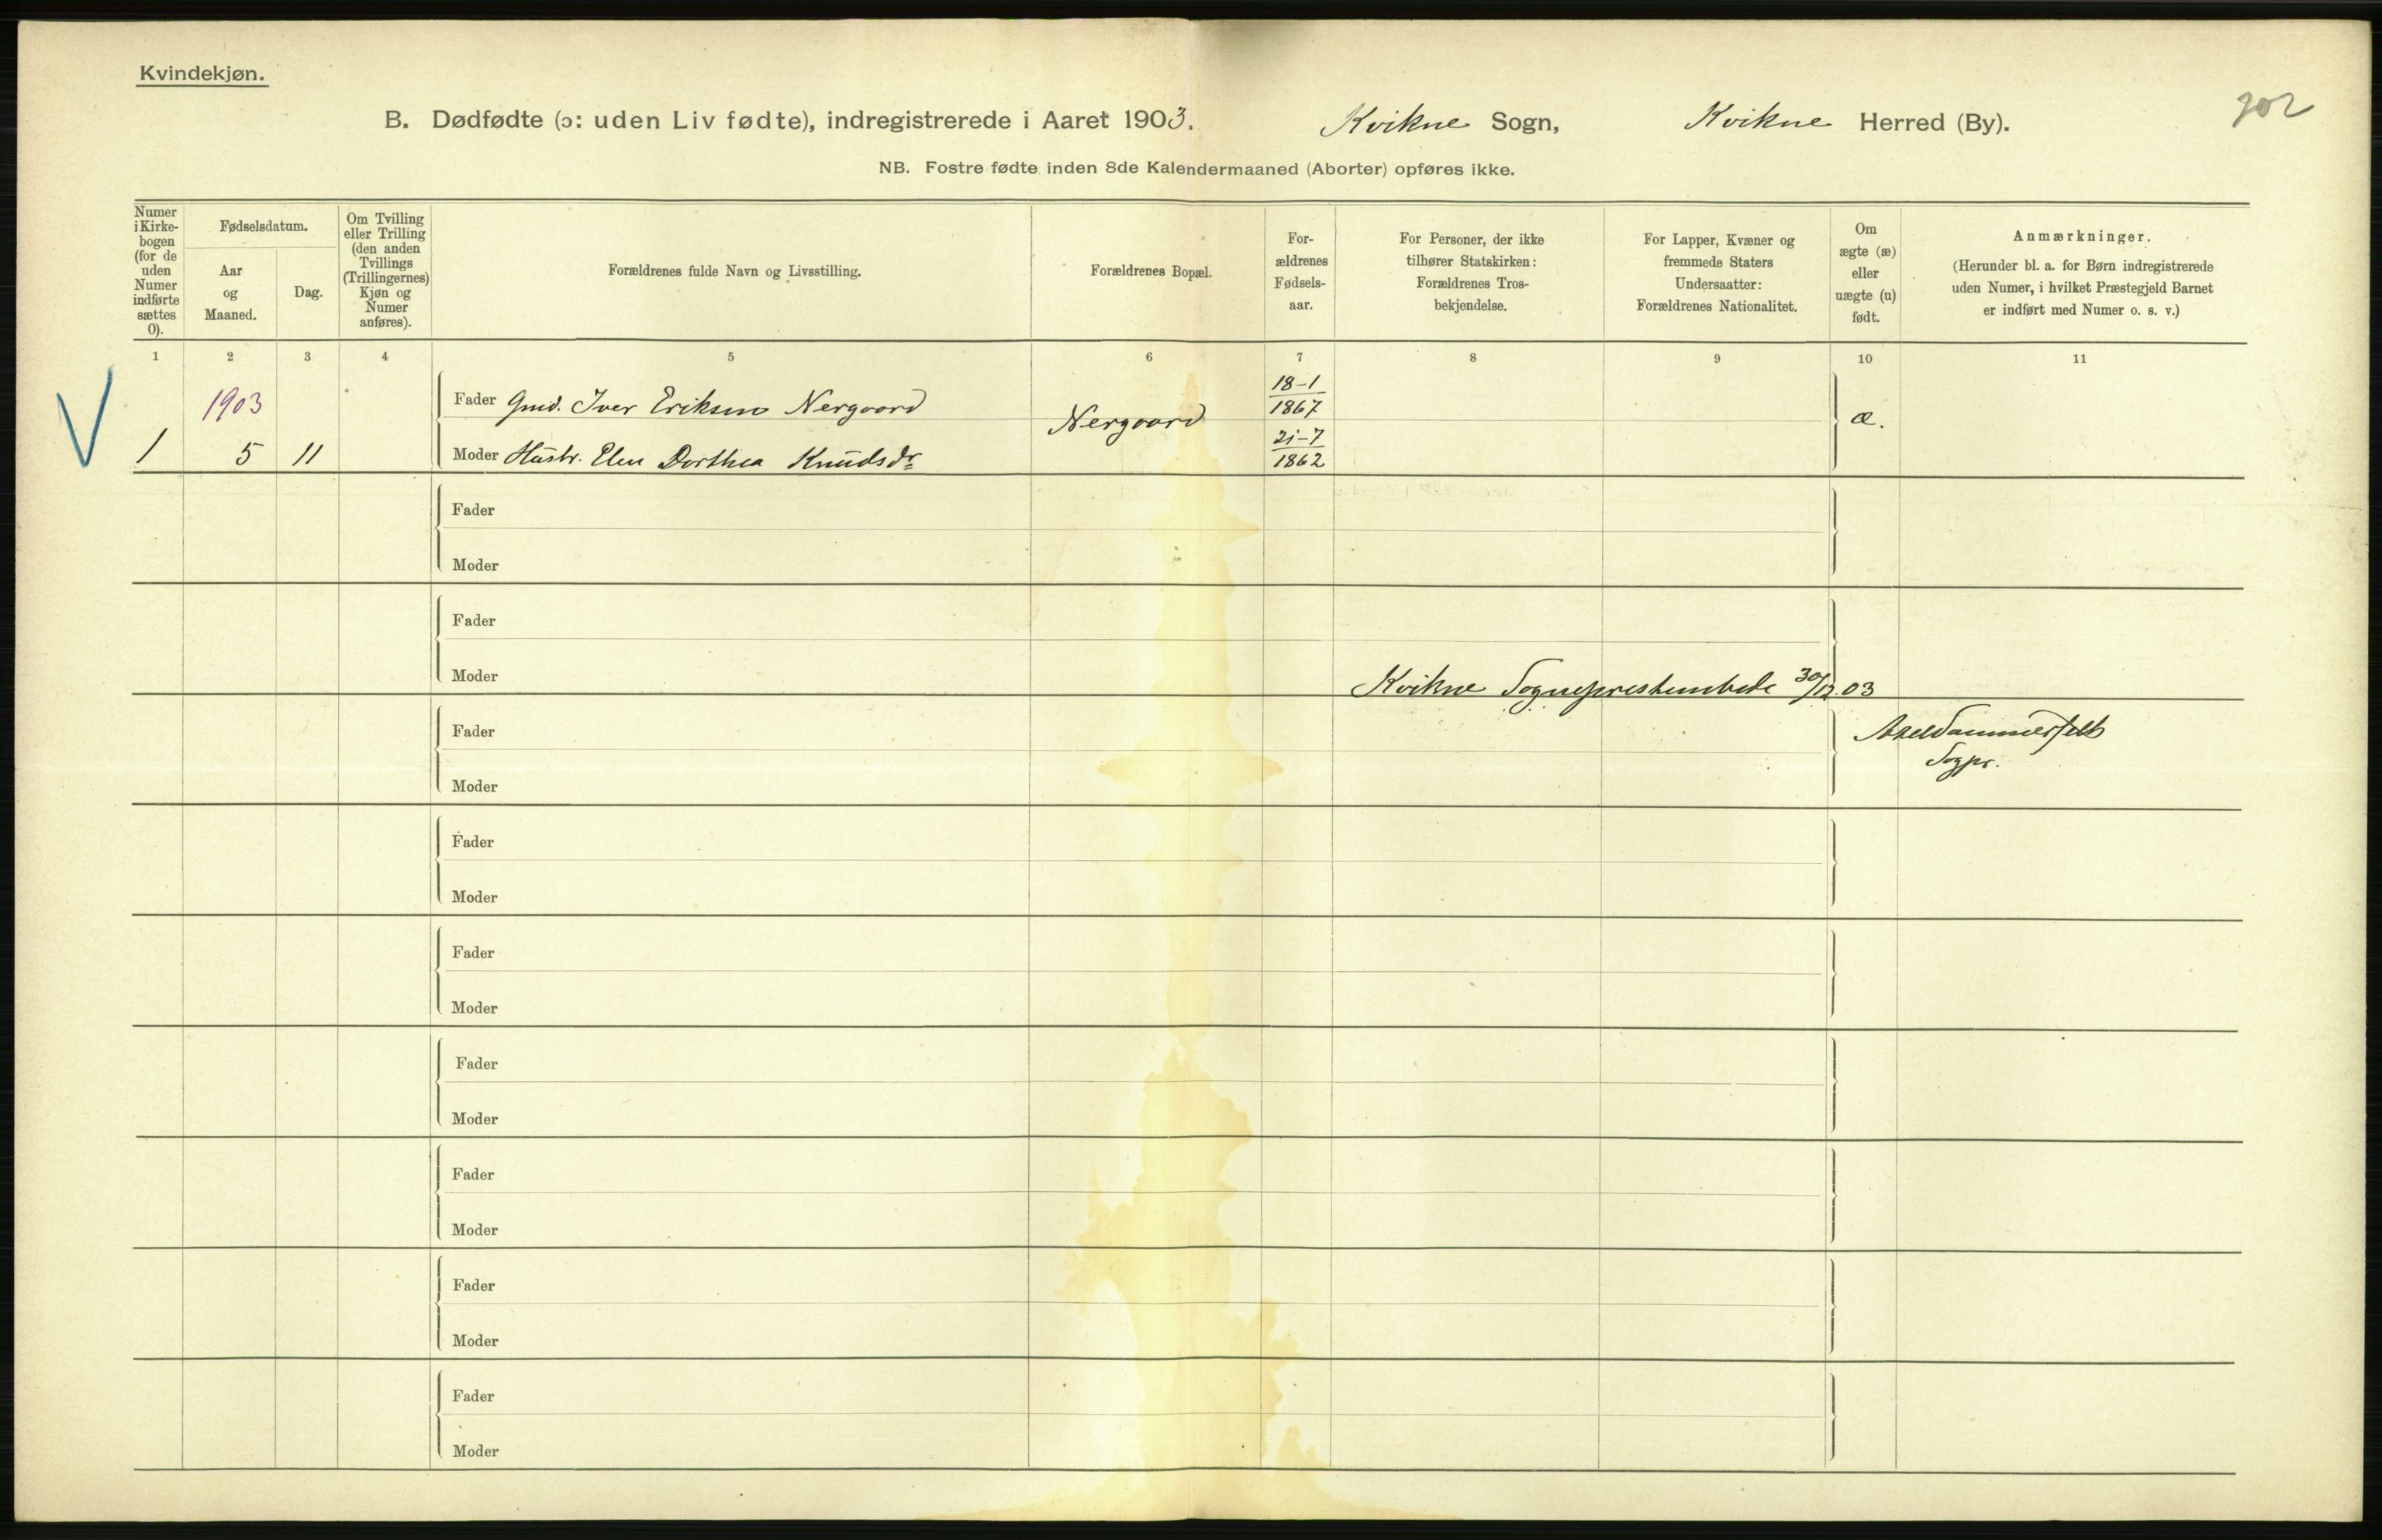 Kvindekjøn.
202
B. Dødfødte (ɔ: uden Liv fødte), indregistrerede i Aaret 1903. Kvikne Sogn, Kvikne Herred (By).
NB. Fostre fødte inden 8de Kalendermaaned (Aborter) opføres ikke.
Numer
i Kirke-
bogen
(for de
uden
Numer
indførte
sættes
0).
Fødselsdatum.
Aar
og
Maaned.
Dag.
Om Tvilling
eller Trilling
(den anden
Tvillings
(Trillingernes)
Kjøn og
Numer
anføres).
Forældrenes fulde Navn og Livsstilling.
Forældrenes Bopæl.
For-
ældrenes
Fødsels-
aar.
For Personer, der ikke
tilhører Statskirken:
Forældrenes Tros-
bekjendelse.
For Lapper, Kvæner og
fremmede Staters
Undersaatter:
Forældrenes Nationalitet.
Om
ægte (æ)
eller
uægte (u)
født.
Anmærkninger.
(Herunder bl. a. for Børn indregistrerede
uden Numer, i hvilket Præstegjeld Barnet
er indført med Numer o. s. v.)
1 2 3 4 5 6 7 8 9 10 11
V
1903
Fader Gmd. Iver Eriksen Nergaard
Nergaard
18-1
1867
æ.
1 5 11
Moder Hustr. Elen Dorthea Knudsdr
21-7
1862
Fader
Moder
Fader
Moder
Kvikne Sogneprestembede 30/12.03
Fader
Axel Sammersfelt
Sogpr.
Moder
Fader
Moder
Fader
Moder
Fader
Moder
Fader
Moder
Fader
Moder
Fader
Moder